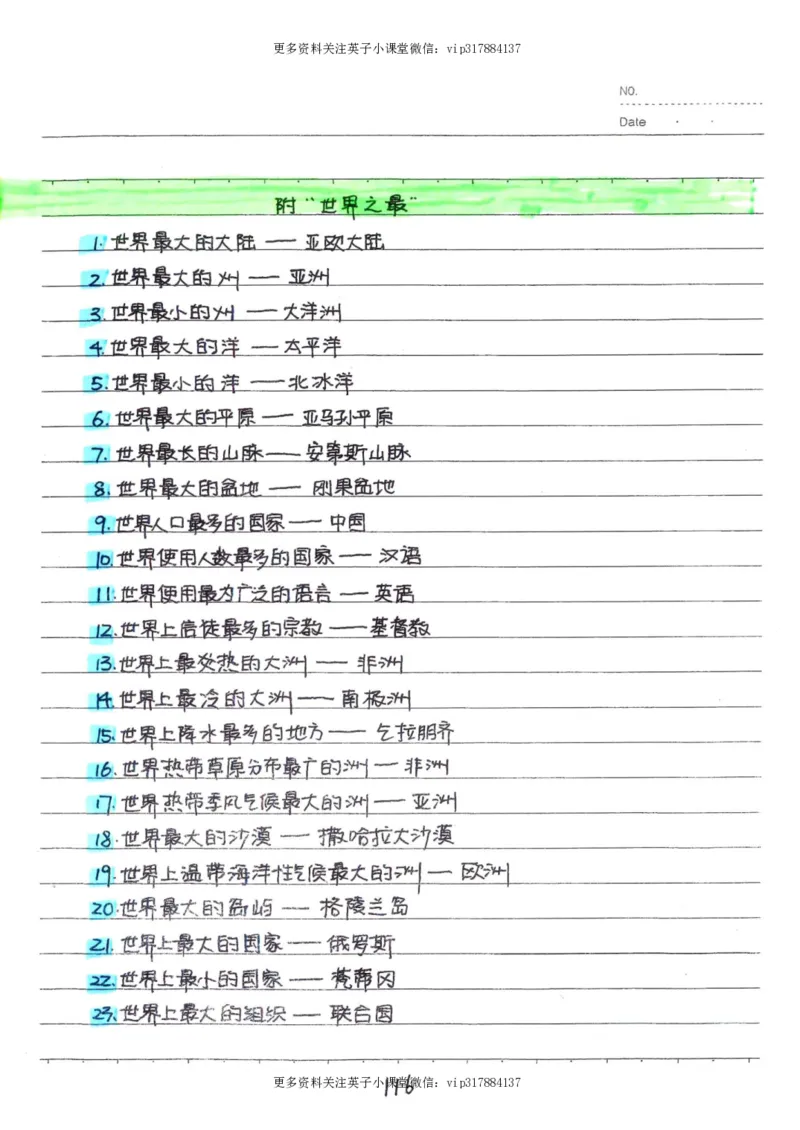 更多资料关注英子小课堂微信：vip317884137
NO.
Date
附“世界之最”
1.世界最大的大陆——亚欧大陆
2.世界最大的州——亚洲
3.世界最小的州——大洋洲
4.世界最大的洋——太平洋
5.世界最小的洋——北冰洋
6.世界最大的平原——亚马孙平原
7.世界最长的山脉——安第斯山脉
8.世界最大的盆地——刚果盆地
9.世界人口最多的国家——中国
10.世界使用人数最多的国家——汉语
11.世界使用最为广泛的语言——英语
12.世界上信徒最多的宗教——基督教
13.世界上最炎热的大洲——非洲
14.世界上最冷的大洲——南极洲
15.世界上降水最多的地方——乞拉朋齐
16.世界热带草原分布最广的洲—非洲
17.世界热带季风气候最大的洲—亚洲
18.世界最大的沙漠——撒哈拉大沙漠
19.世界上温带海洋性气候最大的洲—欧洲
20.世界最大的岛屿——格陵兰岛
21.世界上最大的国家——俄罗斯
22.世界上最小的国家——梵蒂冈
23.世界上最大的组织—联合国
更多资料关注英子小课堂微信：vip317884137
116